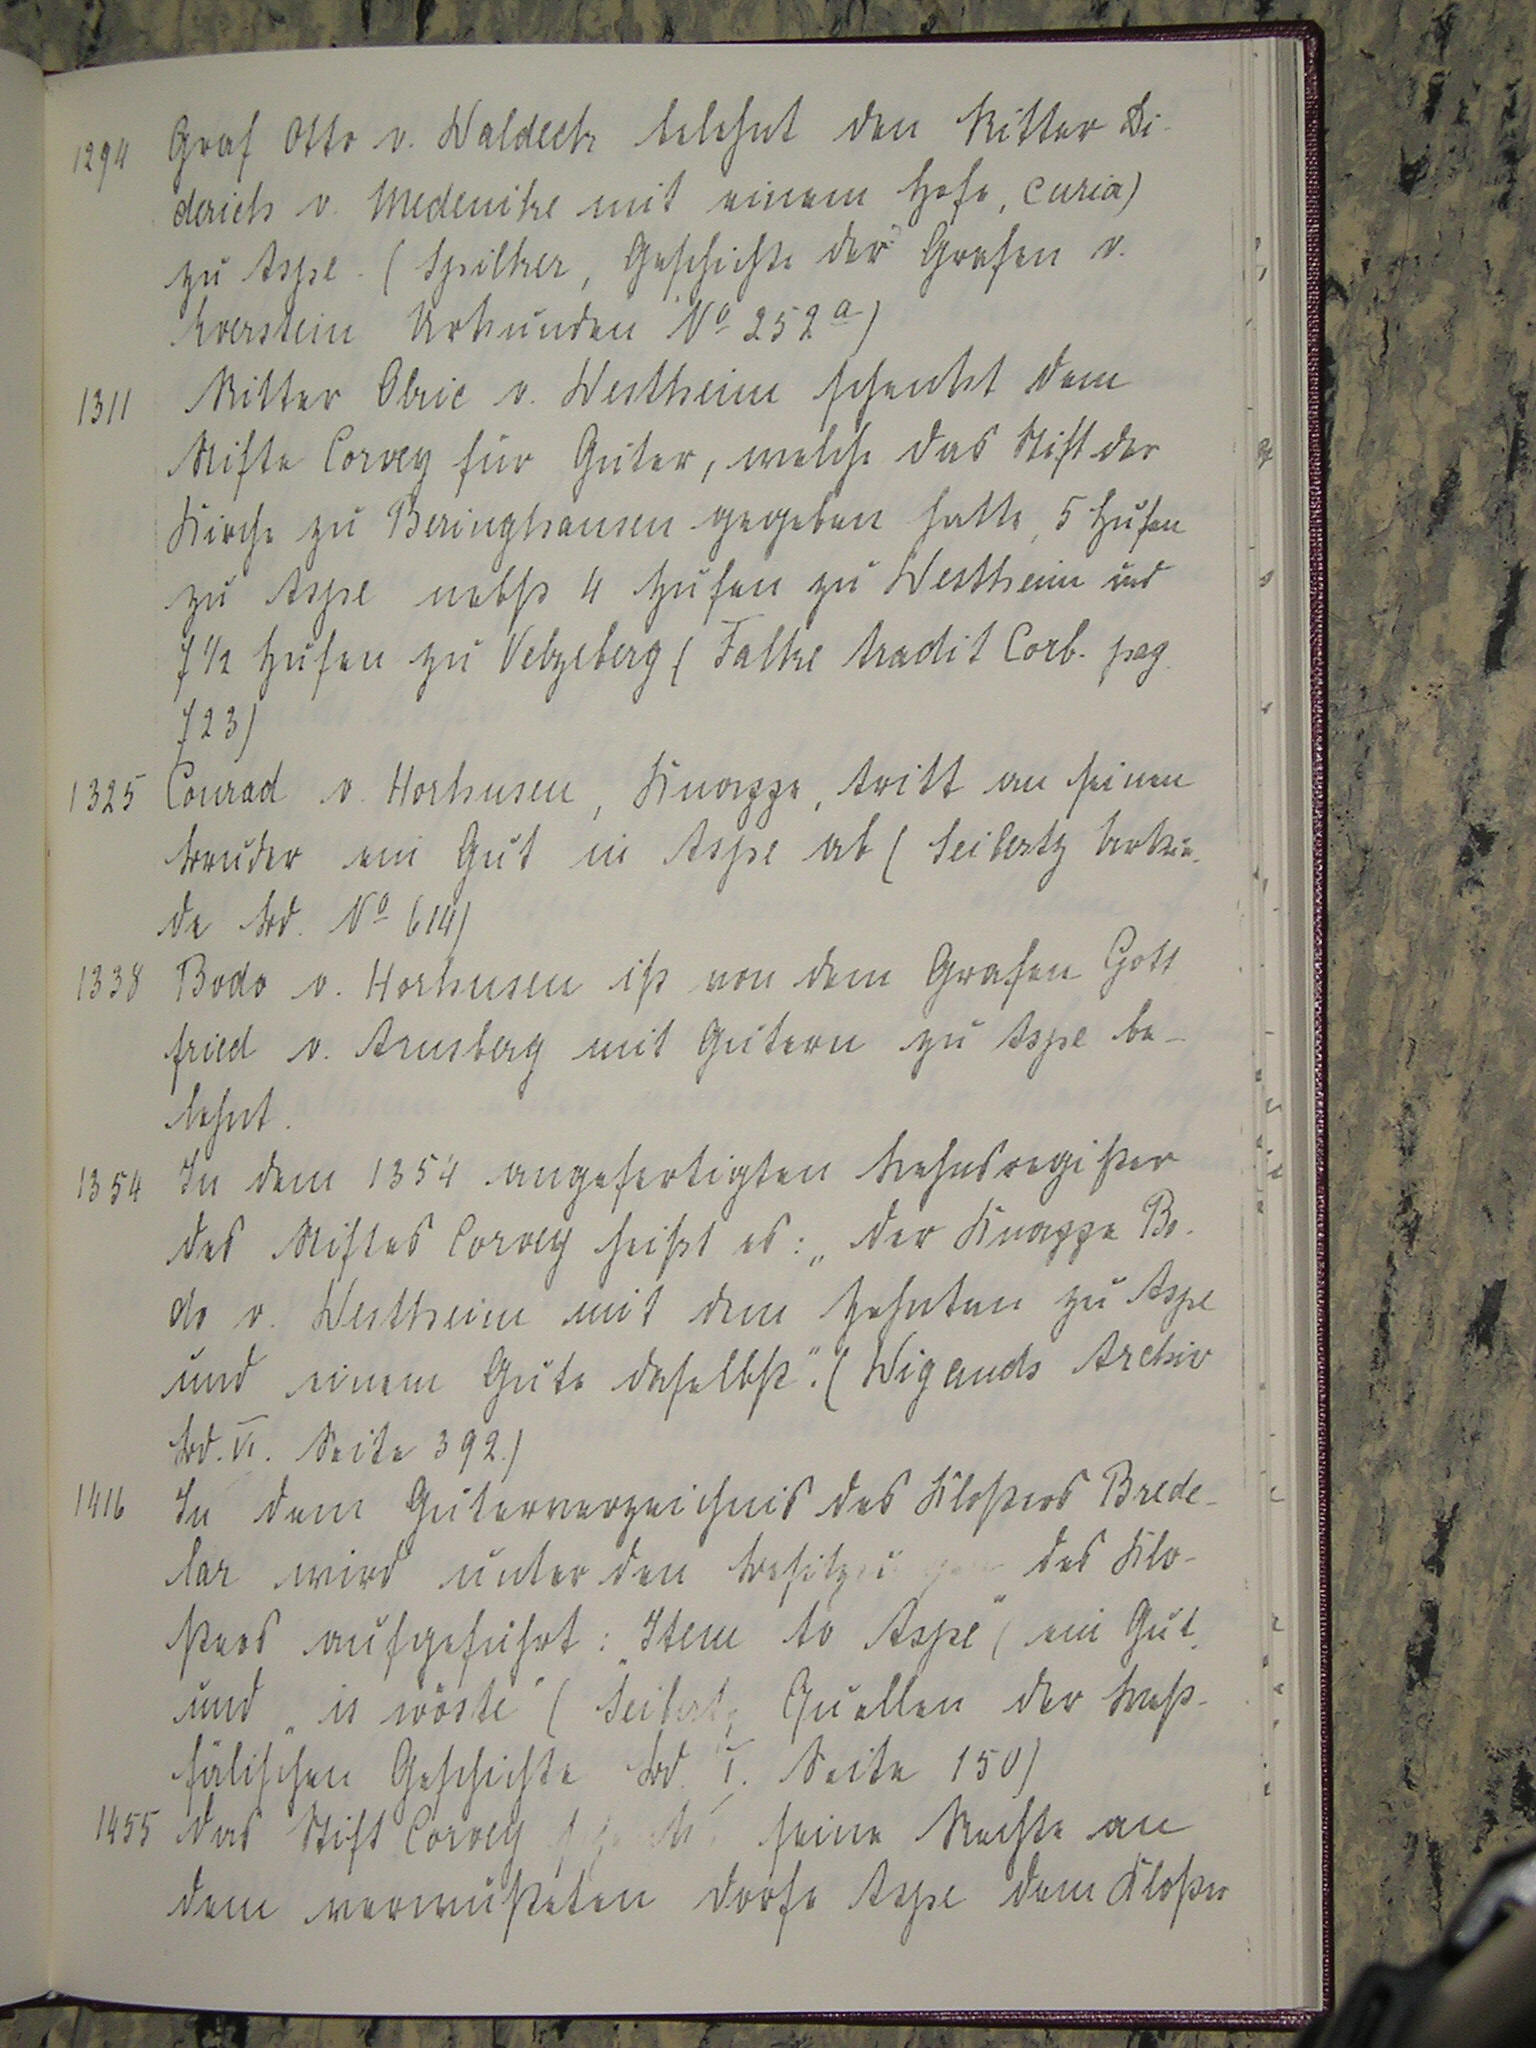 1294 Graf Otto v. Waldeck belehnt den Ritter Di-
derich v. Medenike mit einem Hofe, curia)
zu Aspe. (Spilker, Geschichte der Grafen v.
Everstein Urkunden No 252a)
1311 Ritter Olric v. Westheim schenkt dem
Stifte Corvey für Güter, welche das Stift der
Kirche zu Beringhausen gegeben hatte, 5 Hufen
zu Aspe nebst 4 Hufen zu Westheim und
7 1/2 Hufen zu Velzeberg (Falke tradit Corb. pag.
723)
1325 Conrad v. Horhusen, Knappe, tritt an seinen
Bruder ein Gut in Aspe ab (Seibertz Urkun-
de Bd. No 614)
1338 Bodo v. Horhusen ist von dem Grafen Gott
fried v. Arnsberg mit Gütern zu Aspe be-
lehnt.
1354 In dem 1354 angefertigten Lehnsregister
des Stiftes Corvey heißt es: „der Knappe Bo-
do v. Westheim mit dem Zehnten zu Aspe
und einem Gute daselbst". (Wigands Archiv
Bd. VI. Seite 392.)
1416 In dem Güterverzeichnis des Klosters Brede-
lar wird unter den Besitzungen des Klo-
sters aufgeführt: „Item to Aspe" (ein Gut
und „is wöste" (Seibertz Quellen der West-
fälischen Geschichte Bd. I. Seite 150)
1455 das Stift Corvey schenkt seine Rechte an
dem verwüsteten Dorfe Aspe dem Kloster